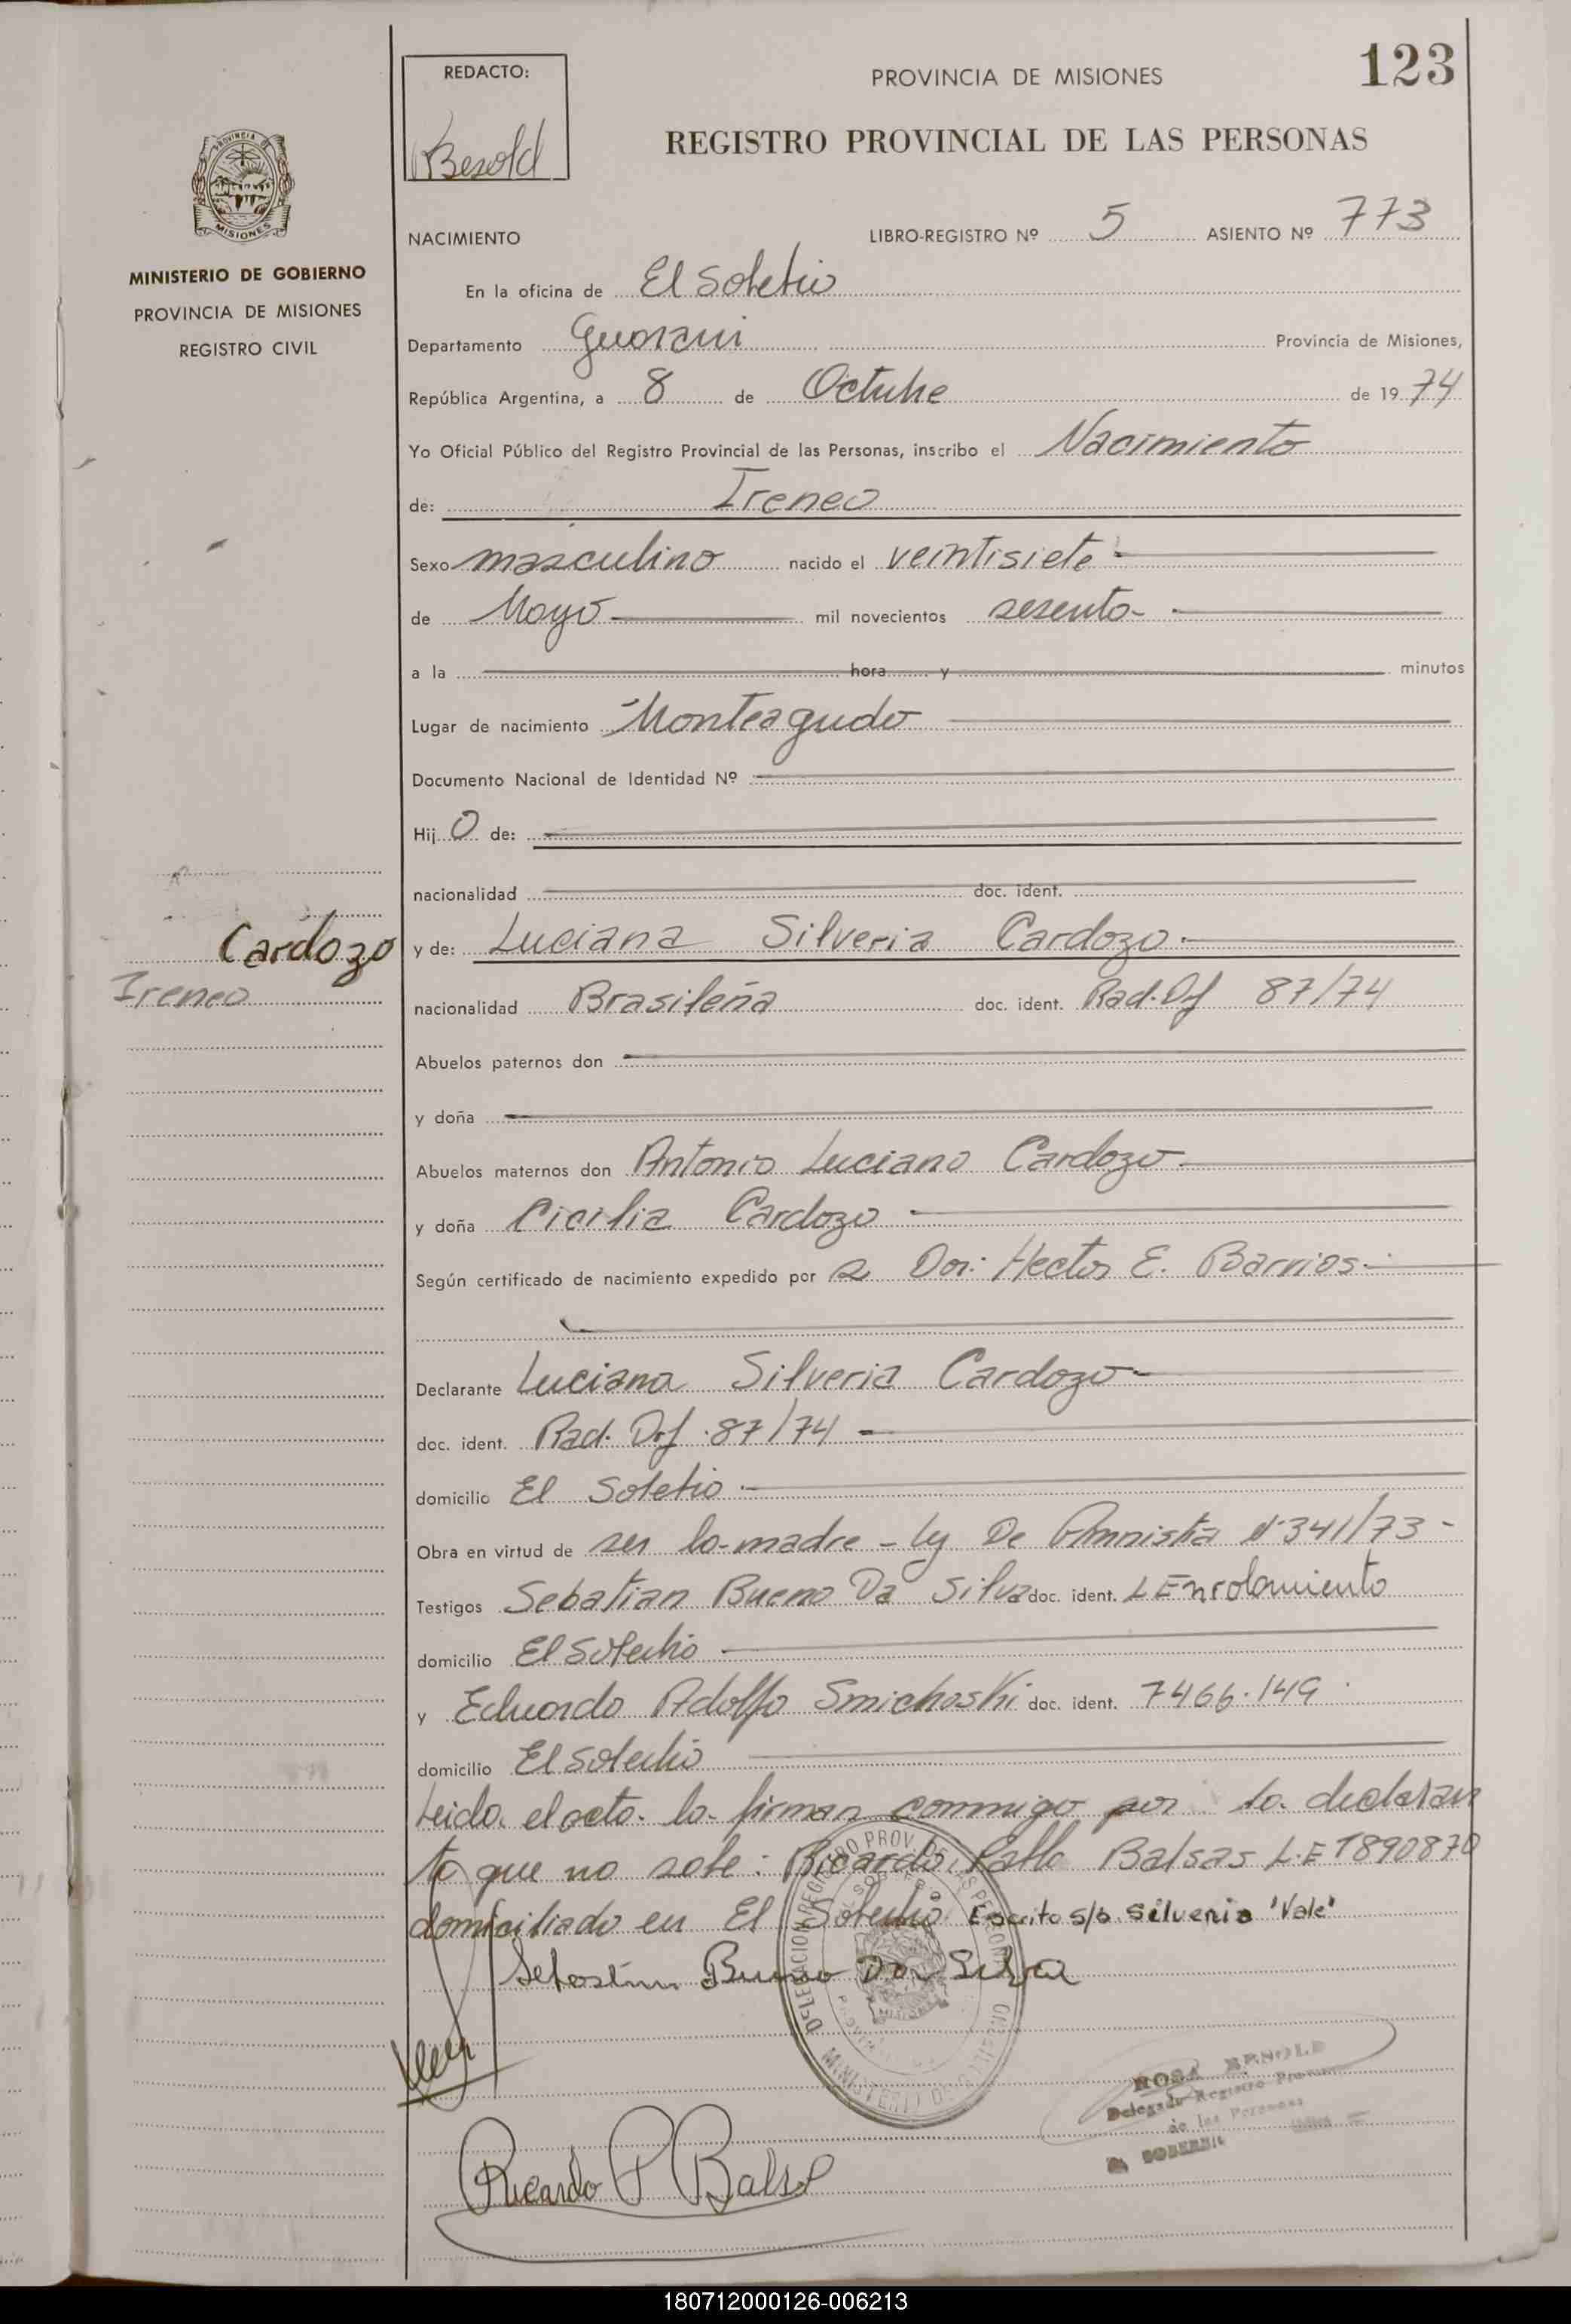 123
REDACTO:
Besold
PROVINCIA DE MISIONES
REGISTRO PROVINCIAL DE LAS PERSONAS
PROVINCIA DE
MISIONES
MINISTERIO DE GOBIERNO
PROVINCIA DE MISIONES
REGISTRO CIVIL
NACIMIENTO LIBRO-REGISTRO Nº 5 ASIENTO Nº 773
En la oficina de El Soberbio
Departamento Guarani Provincia de Misiones,
República Argentina, a 8 de Octubre de 1974
Yo Oficial Público del Registro Provincial de las Personas, inscribo el Nacimiento
de: Ireneo
Sexo masculino nacido el veintisiete
de Mayo mil novecientos sesenta
a la hora y minutos
Lugar de nacimiento Monteagudo
Documento Nacional de Identidad Nº
Hijo de:
nacionalidad doc. ident.
Cardozo
Ireneo
y de: Luciana Silveria Cardozo
nacionalidad Brasileña doc. ident. Rad. Def 87/74
Abuelos paternos don
y doña
Abuelos maternos don Antonio Luciano Cardozo
y doña Cicilia Cardozo
Según certificado de nacimiento expedido por Hector E. Barrios
Declarante Luciana Silveria Cardozo
doc. ident. Rad. Def. 87/74
domicilio El Soberbio
Obra en virtud de ser la madre - Ley De Amnistia Nº 341/73 -
Testigos Sebatian Bueno Da Silva doc. ident. L Enrolamiento
domicilio El Soberbio
y Eduardo Adolfo Smichoski doc. ident. 7466.149
domicilio El Soberbio
Leida el acta la firman conmigo por la declaran
te que no sabe: Ricardo Pablo Balsas L.E 7890870
domiciliado en El Soberbio Escrito s/b Silveria "Vale"
Sebastian Bueno Da Silva
DELEGACION REGISTRO PROV. DE LAS PERSONAS
MINISTERIO DE GOBIERNO
ROSA BESOLD
Delegada Registro Provincial
de las Personas
EL SOBERBIO
Ricardo P Balsa
180712000126-006213